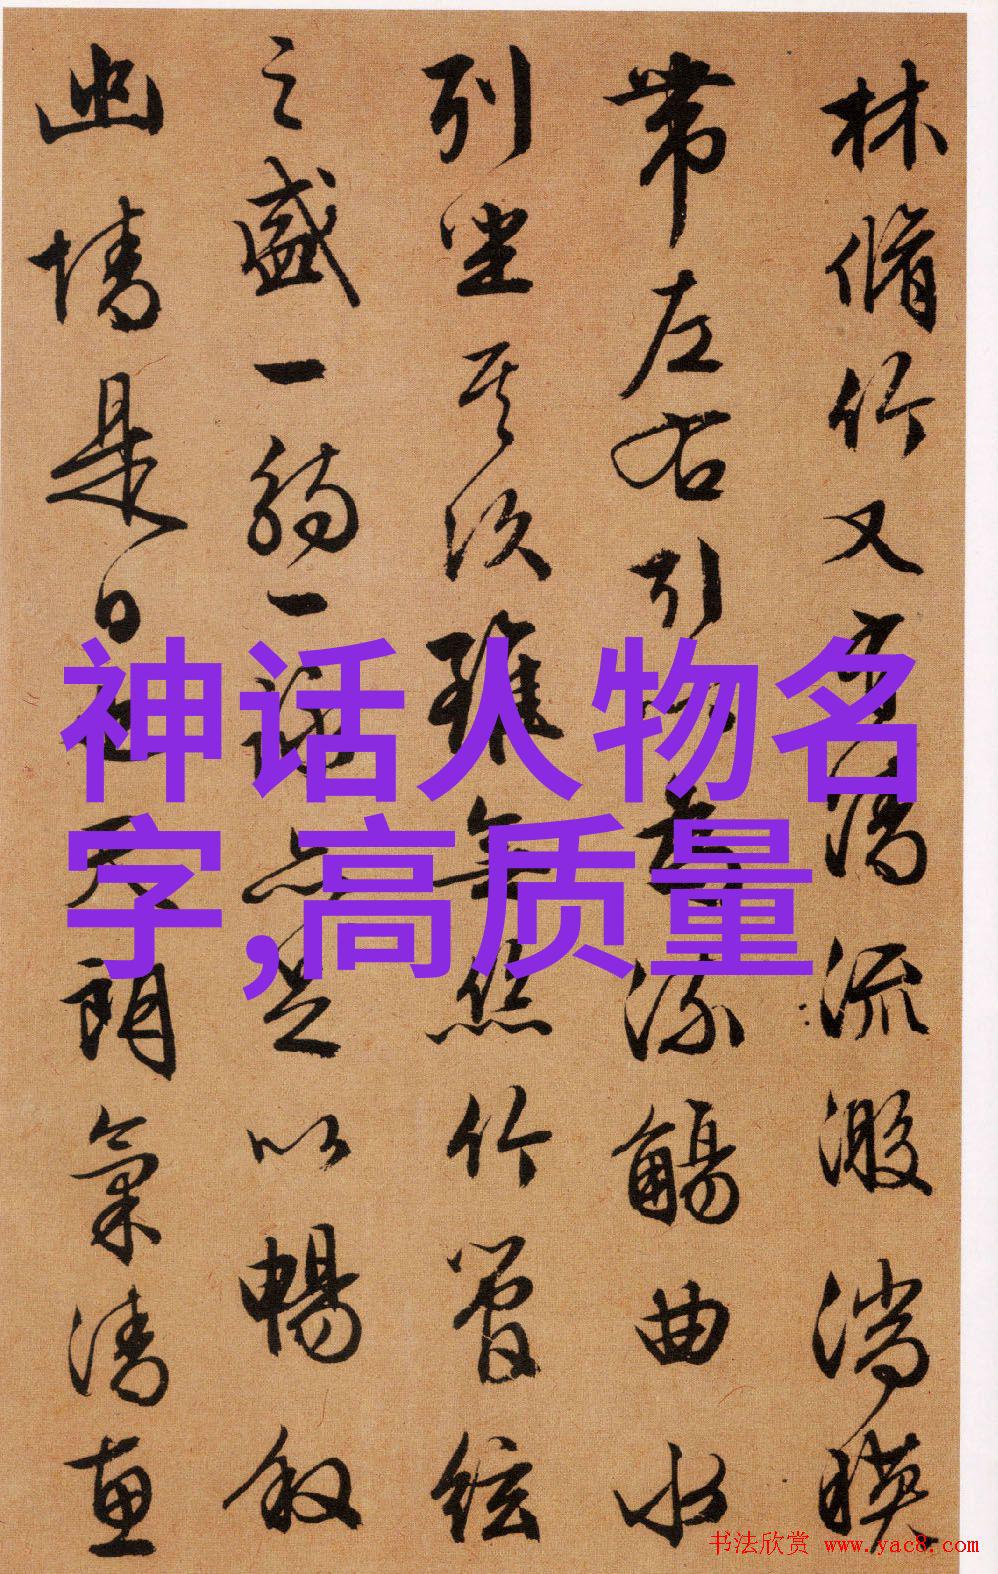 林脩竹又有清流激湍暎
帶左右引以為流觴曲水
列坐其次雖無絲竹管絃
之盛一觴一詠亦足以暢叙
幽情是日也天朗氣清惠
神话人物名
字,高质量
书法欣赏 www.yac8.com